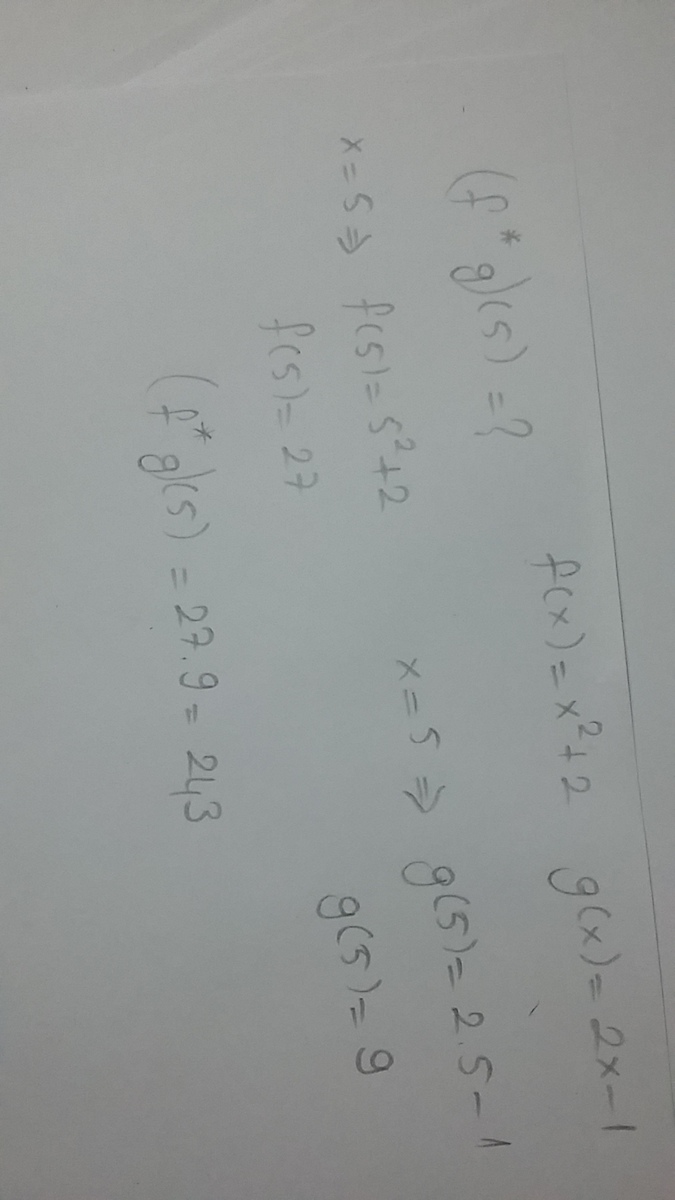 f(x) = x² + 2 g(x) = 2x - 1
(f * g)(5) = ?
x = 5 ⇒ f(5) = 5² + 2 x = 5 ⇒ g(5) = 2.5 - 1
f(5) = 27 g(5) = 9
(f * g)(5) = 27.9 = 243